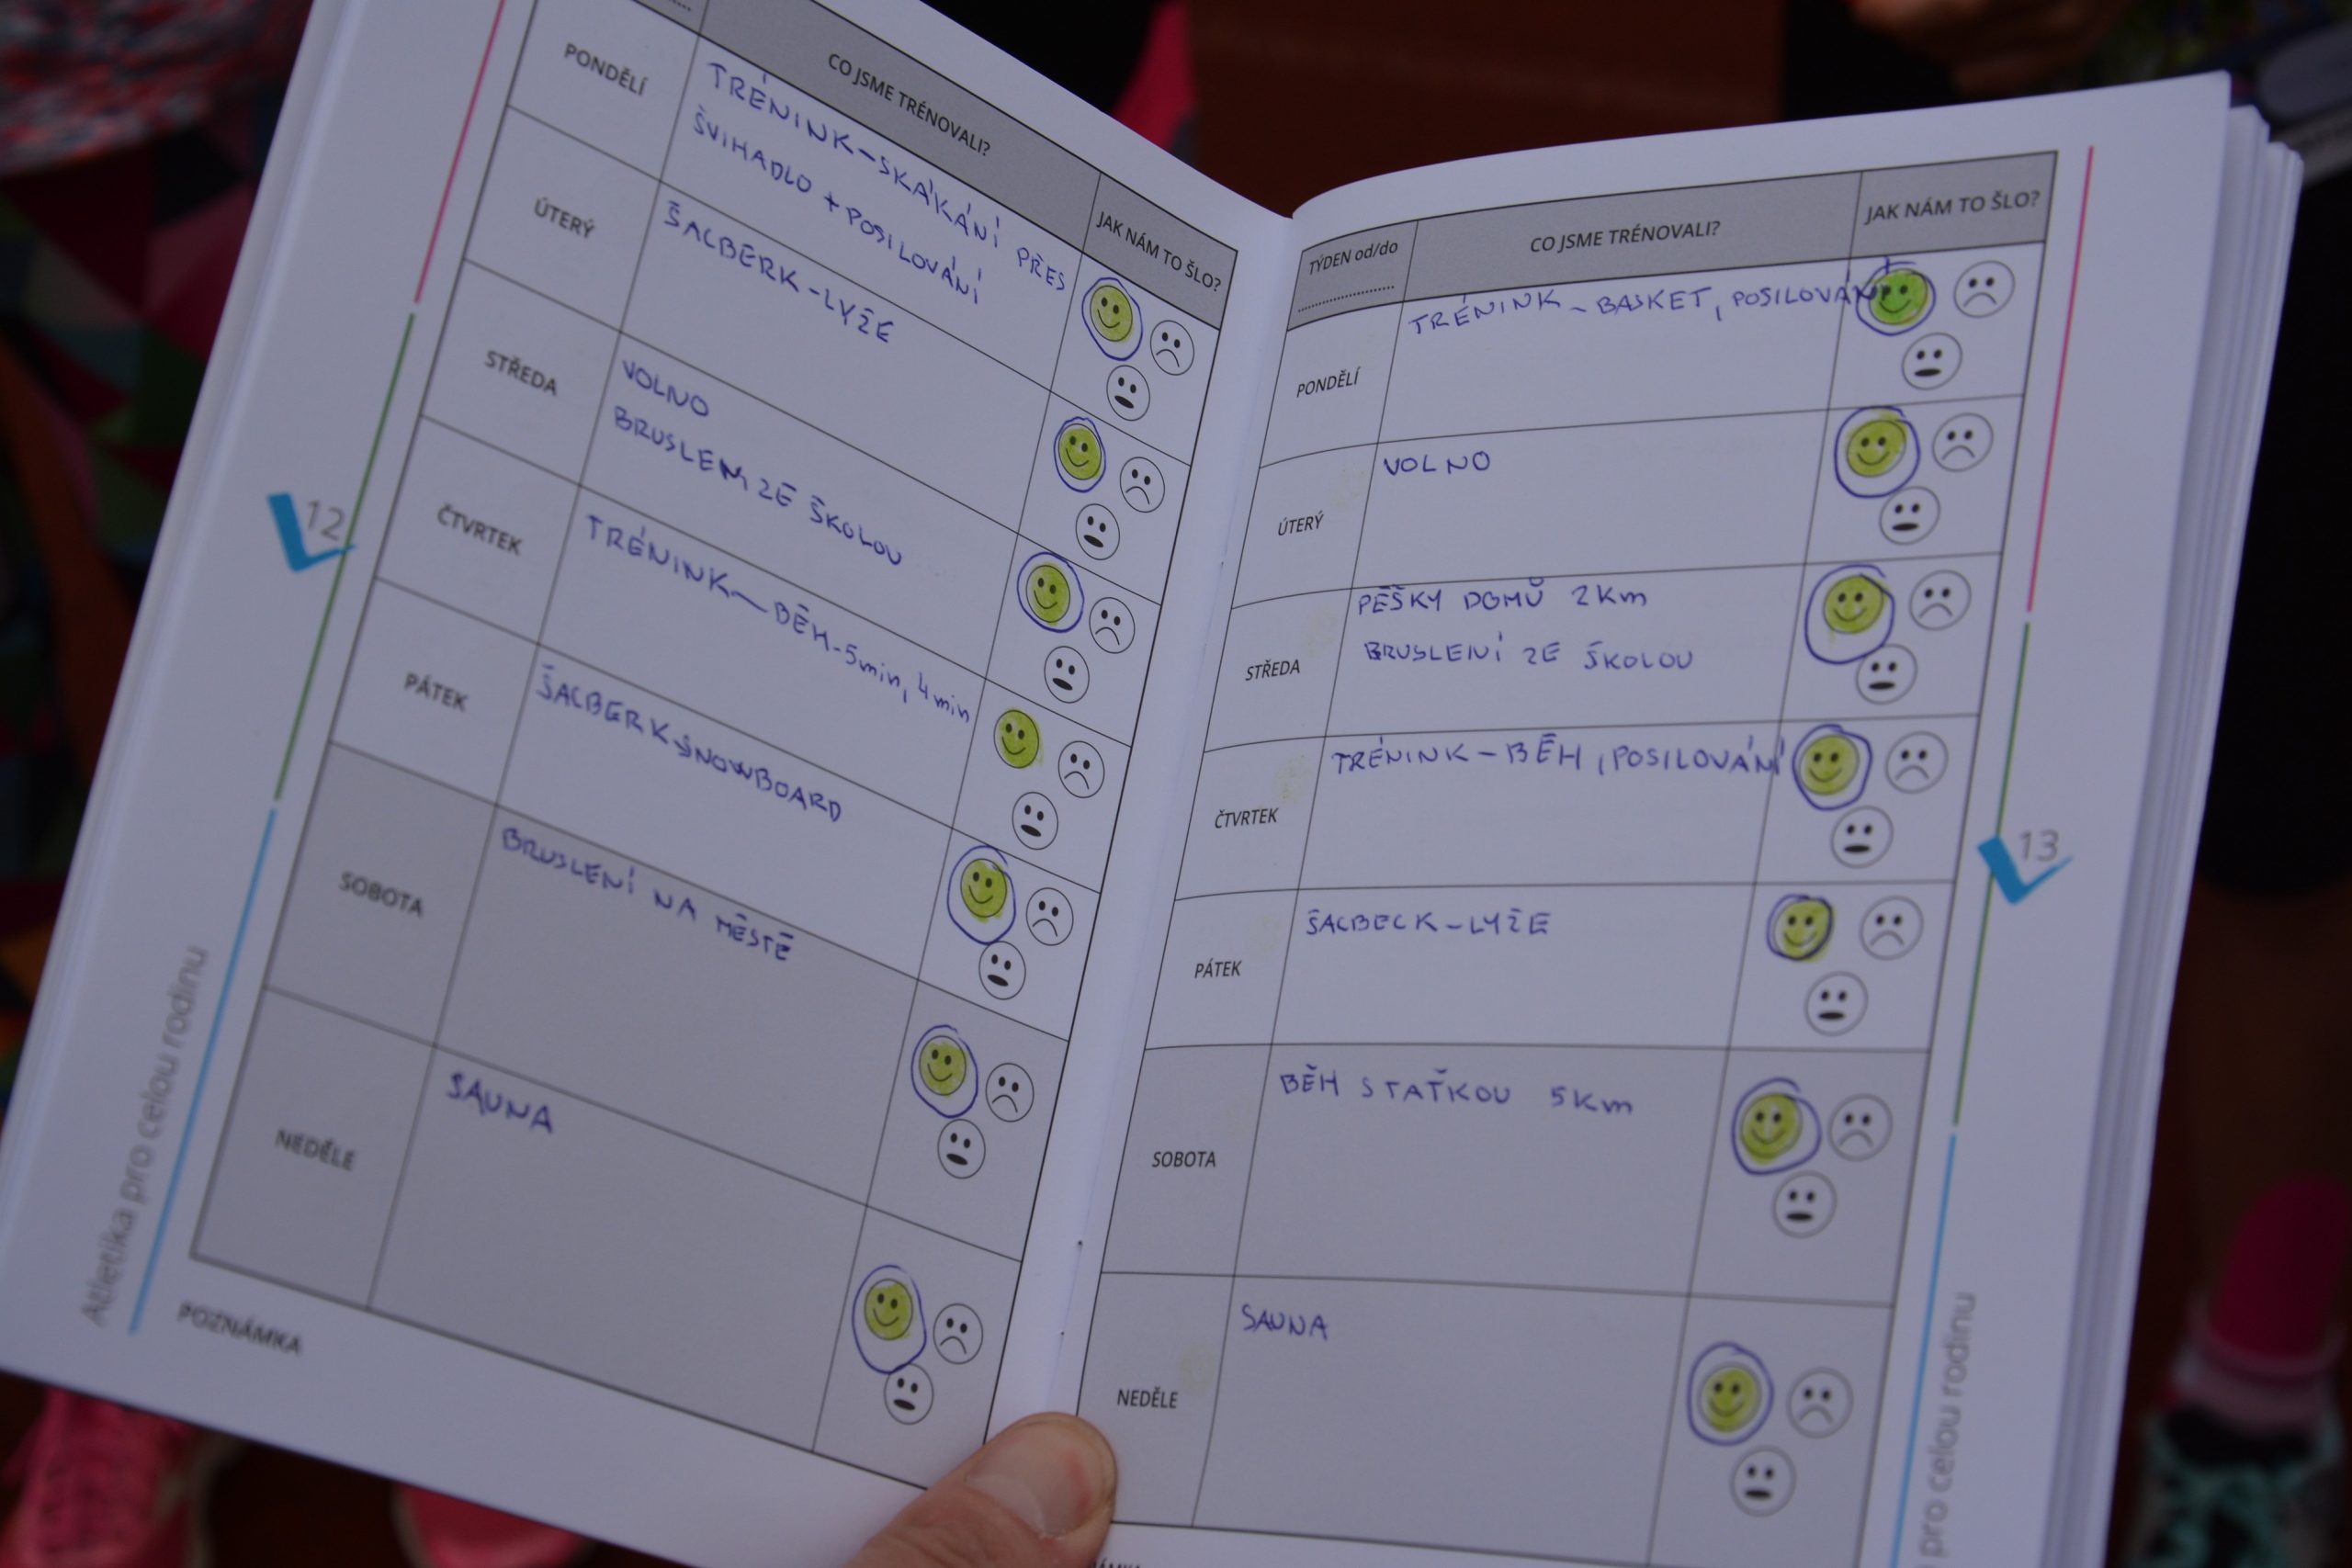 CO JSME TRÉNOVALI?
JAK NÁM TO ŠLO?
PONDĚLÍ
TRÉNINK-SKÁKÁNÍ PŘES
ŠVIHADLO + POSILOVÁNÍ
ÚTERÝ
ŠACBERK-LYŽE
STŘEDA
VOLNO
BRUSLENÍ ZE ŠKOLOU
ČTVRTEK
TRÉNINK-BĚH-5min, 4min
PÁTEK
ŠACBERK-SNOWBOARD
SOBOTA
BRUSLENÍ NA MĚSTĚ
NEDĚLE
SAUNA
POZNÁMKA
12
Atletika pro celou rodinu
TÝDEN od/do
CO JSME TRÉNOVALI?
JAK NÁM TO ŠLO?
PONDĚLÍ
TRÉNINK-BASKET, POSILOVÁNÍ
ÚTERÝ
VOLNO
STŘEDA
PĚŠKY DOMŮ 2Km
BRUSLENÍ ZE ŠKOLOU
ČTVRTEK
TRÉNINK-BĚH, POSILOVÁNÍ
PÁTEK
ŠACBECK-LYŽE
SOBOTA
BĚH S TAŤKOU 5Km
NEDĚLE
SAUNA
13
pro celou rodinu